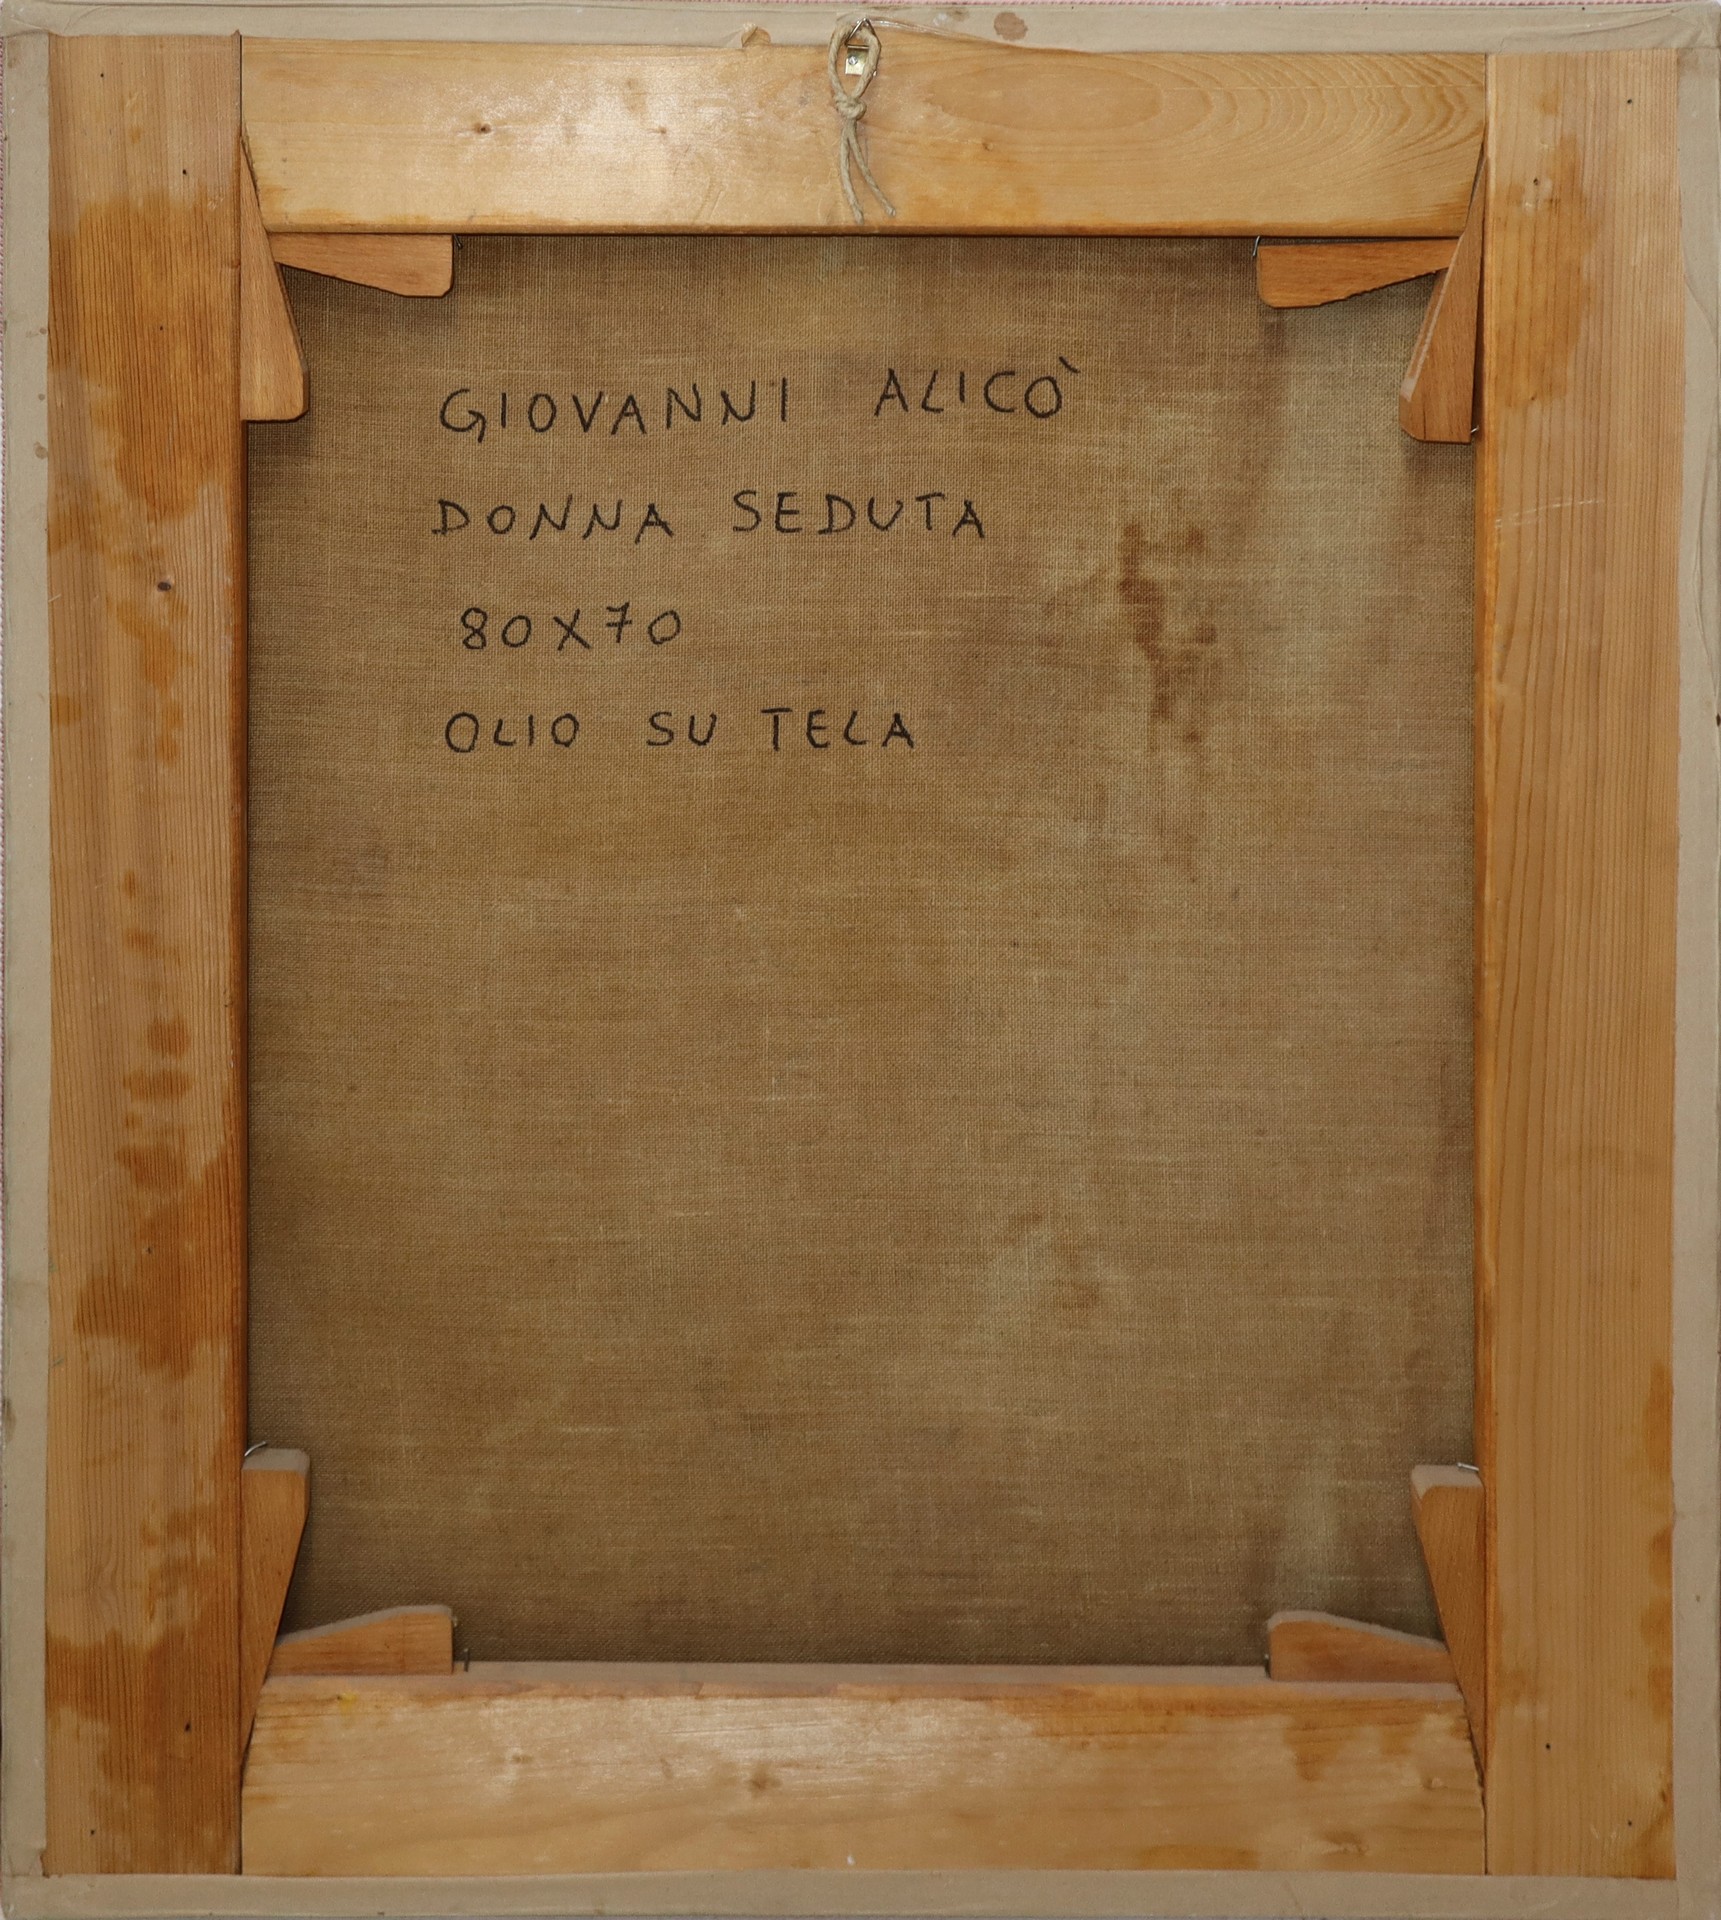 GIOVANNI ALICÒ
DONNA SEDUTA
80X70
OLIO SU TELA